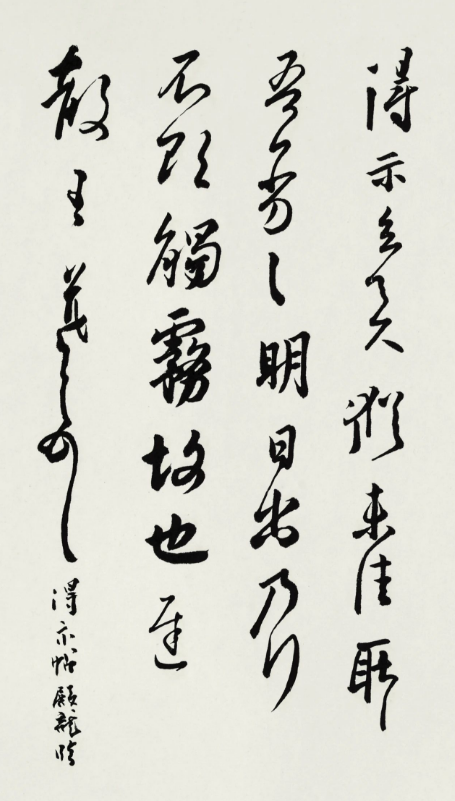 得示知足下猶未佳耿耿
吾亦劣劣明日出乃行
不欲觸霧故也遲
散王羲之頓首
得示帖顧龍臨